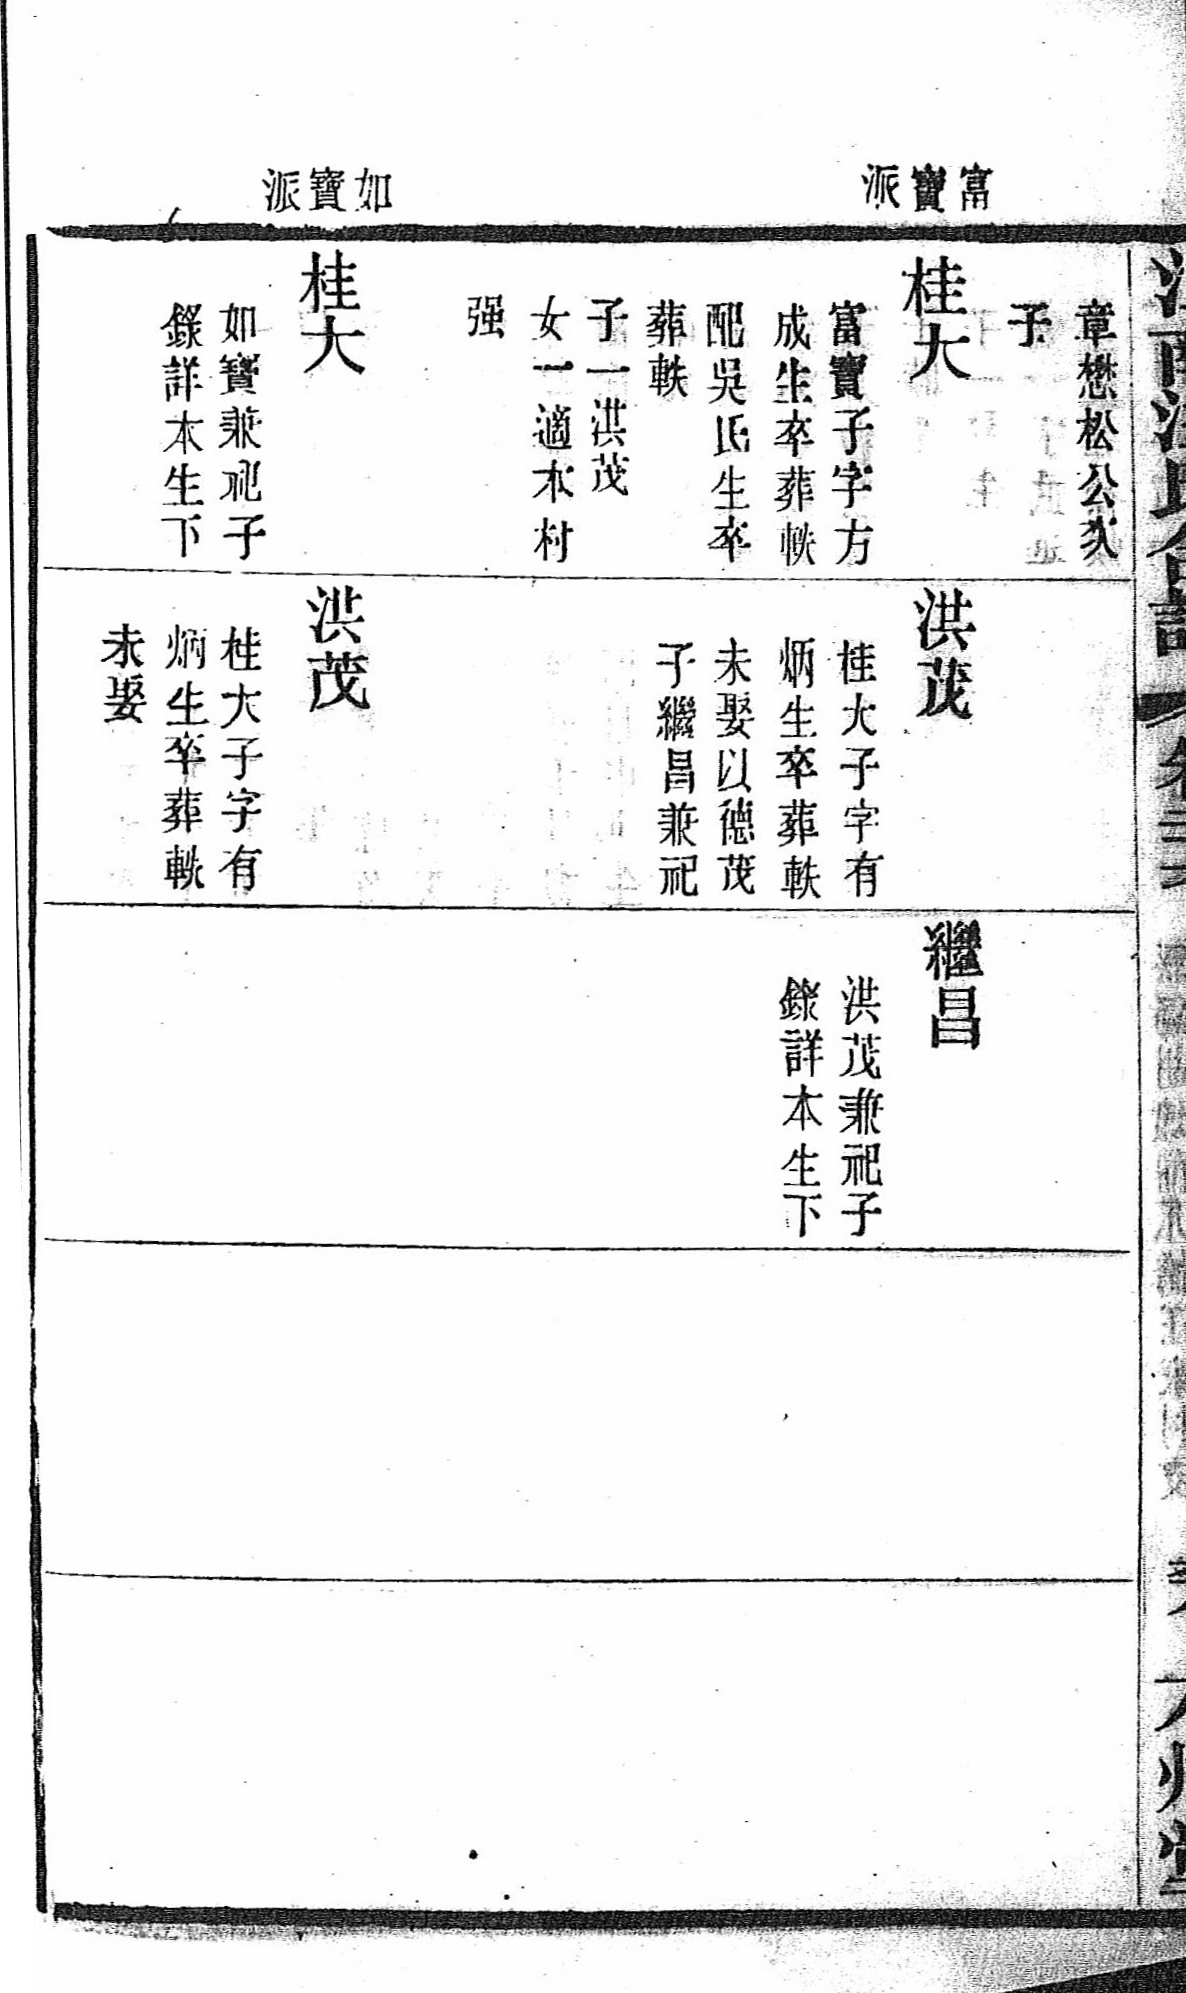 富寶派
如寶派
章懋松公次
子
桂大
富寶子字方
成生卒葬軼
配吳氏生卒
葬軼
子一洪茂
女一適木村
强
桂大
如寶兼祀子
錄詳本生下
洪茂
桂大子字有
炳生卒葬軼
未娶以德茂
子繼昌兼祀
洪茂
桂大子字有
炳生卒葬軼
未娶
繼昌
洪茂兼祀子
錄詳本生下